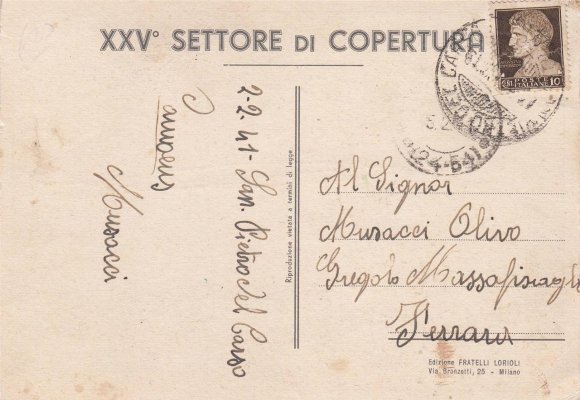 XXV° SETTORE DI COPERTURA
POSTE ITALIANE 10
(24-54)
2-2-41- San Pietro del Carso
Musacci
Riproduzione vietata a termini di legge
Al Signor
Musacci Olivo
Gregolo Massafiscaglia
Ferrara
Edizione FRATELLI LORIOLI
Via Bronzetti, 25 - Milano